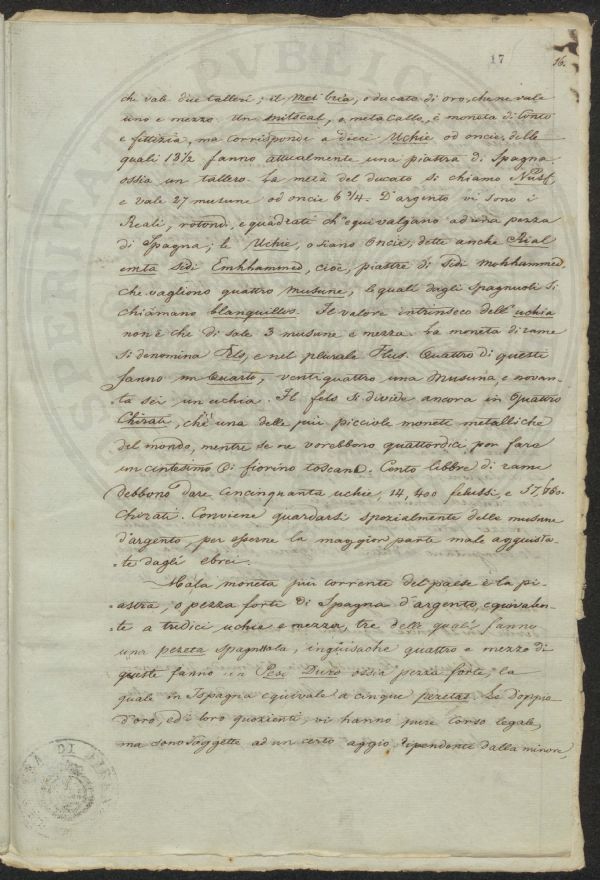 17
16.
che vale due talleri; il Met bria, o ducato di oro, che ne vale
uno e mezzo. Un mitscal, o metacallo, è moneta di conto
e fittizia, ma corrisponde a dieci Uchie od oncie, delle
quali 13½ fanno attualmente una piastra di Spagna,
ossia un tallero. La metà del ducato si chiama Nusf,
e vale 27 musune od oncie 6¾. D'argento vi sono i
Reali, rotondi, e quadrati ch'equivalgano ad una pezza
di Spagna; le Uchie, o siano Oncie, dette anche Rial
emta Sidi Emhhammed, cioè, piastre di Sidi Mohhammed,
che vagliono quattro musune, le quali dagli Spagnuoli si
chiamano blanquillos. Il valore intrinseco dell'uchia
non è che di sole 3 musune e mezza. La moneta di rame
si denomina Fels, e nel plurale Flus. Quattro di questi
fanno un Cuarto, ventiquattro una Musuna, e novan-
ta sei un uchia. Il fels si divide ancora in quattro
Chirati, ch'è una delle più picciole monete metalliche
del mondo, mentre se ne vorebbono quattordici per fare
un centesimo di fiorino toscano. Cento libbre di rame
debbono dare cincinquanta uchie, 14,400 felussi, e 57,600
chirati. Conviene guardarsi spezialmente delle musune
d'argento, per esserne la maggior parte male aggiusta-
te dagli ebrei.
Ma la moneta più corrente del paese è la pi-
astra, o pezza forte di Spagna d'argento, equivalen-
te a tredici uchie e mezza, tre delle quali fanno
una pezeta spagnuola, inguisachè quattro e mezzo di
queste fanno un Peso Duro ossia pezza forte, la
quale in Ispagna equivale a cinque pezetas. Le doppie
d'oro, ed i loro quozienti, vi hanno pure corso legale,
ma sono soggette ad un certo aggio, dipendente dalla minore,